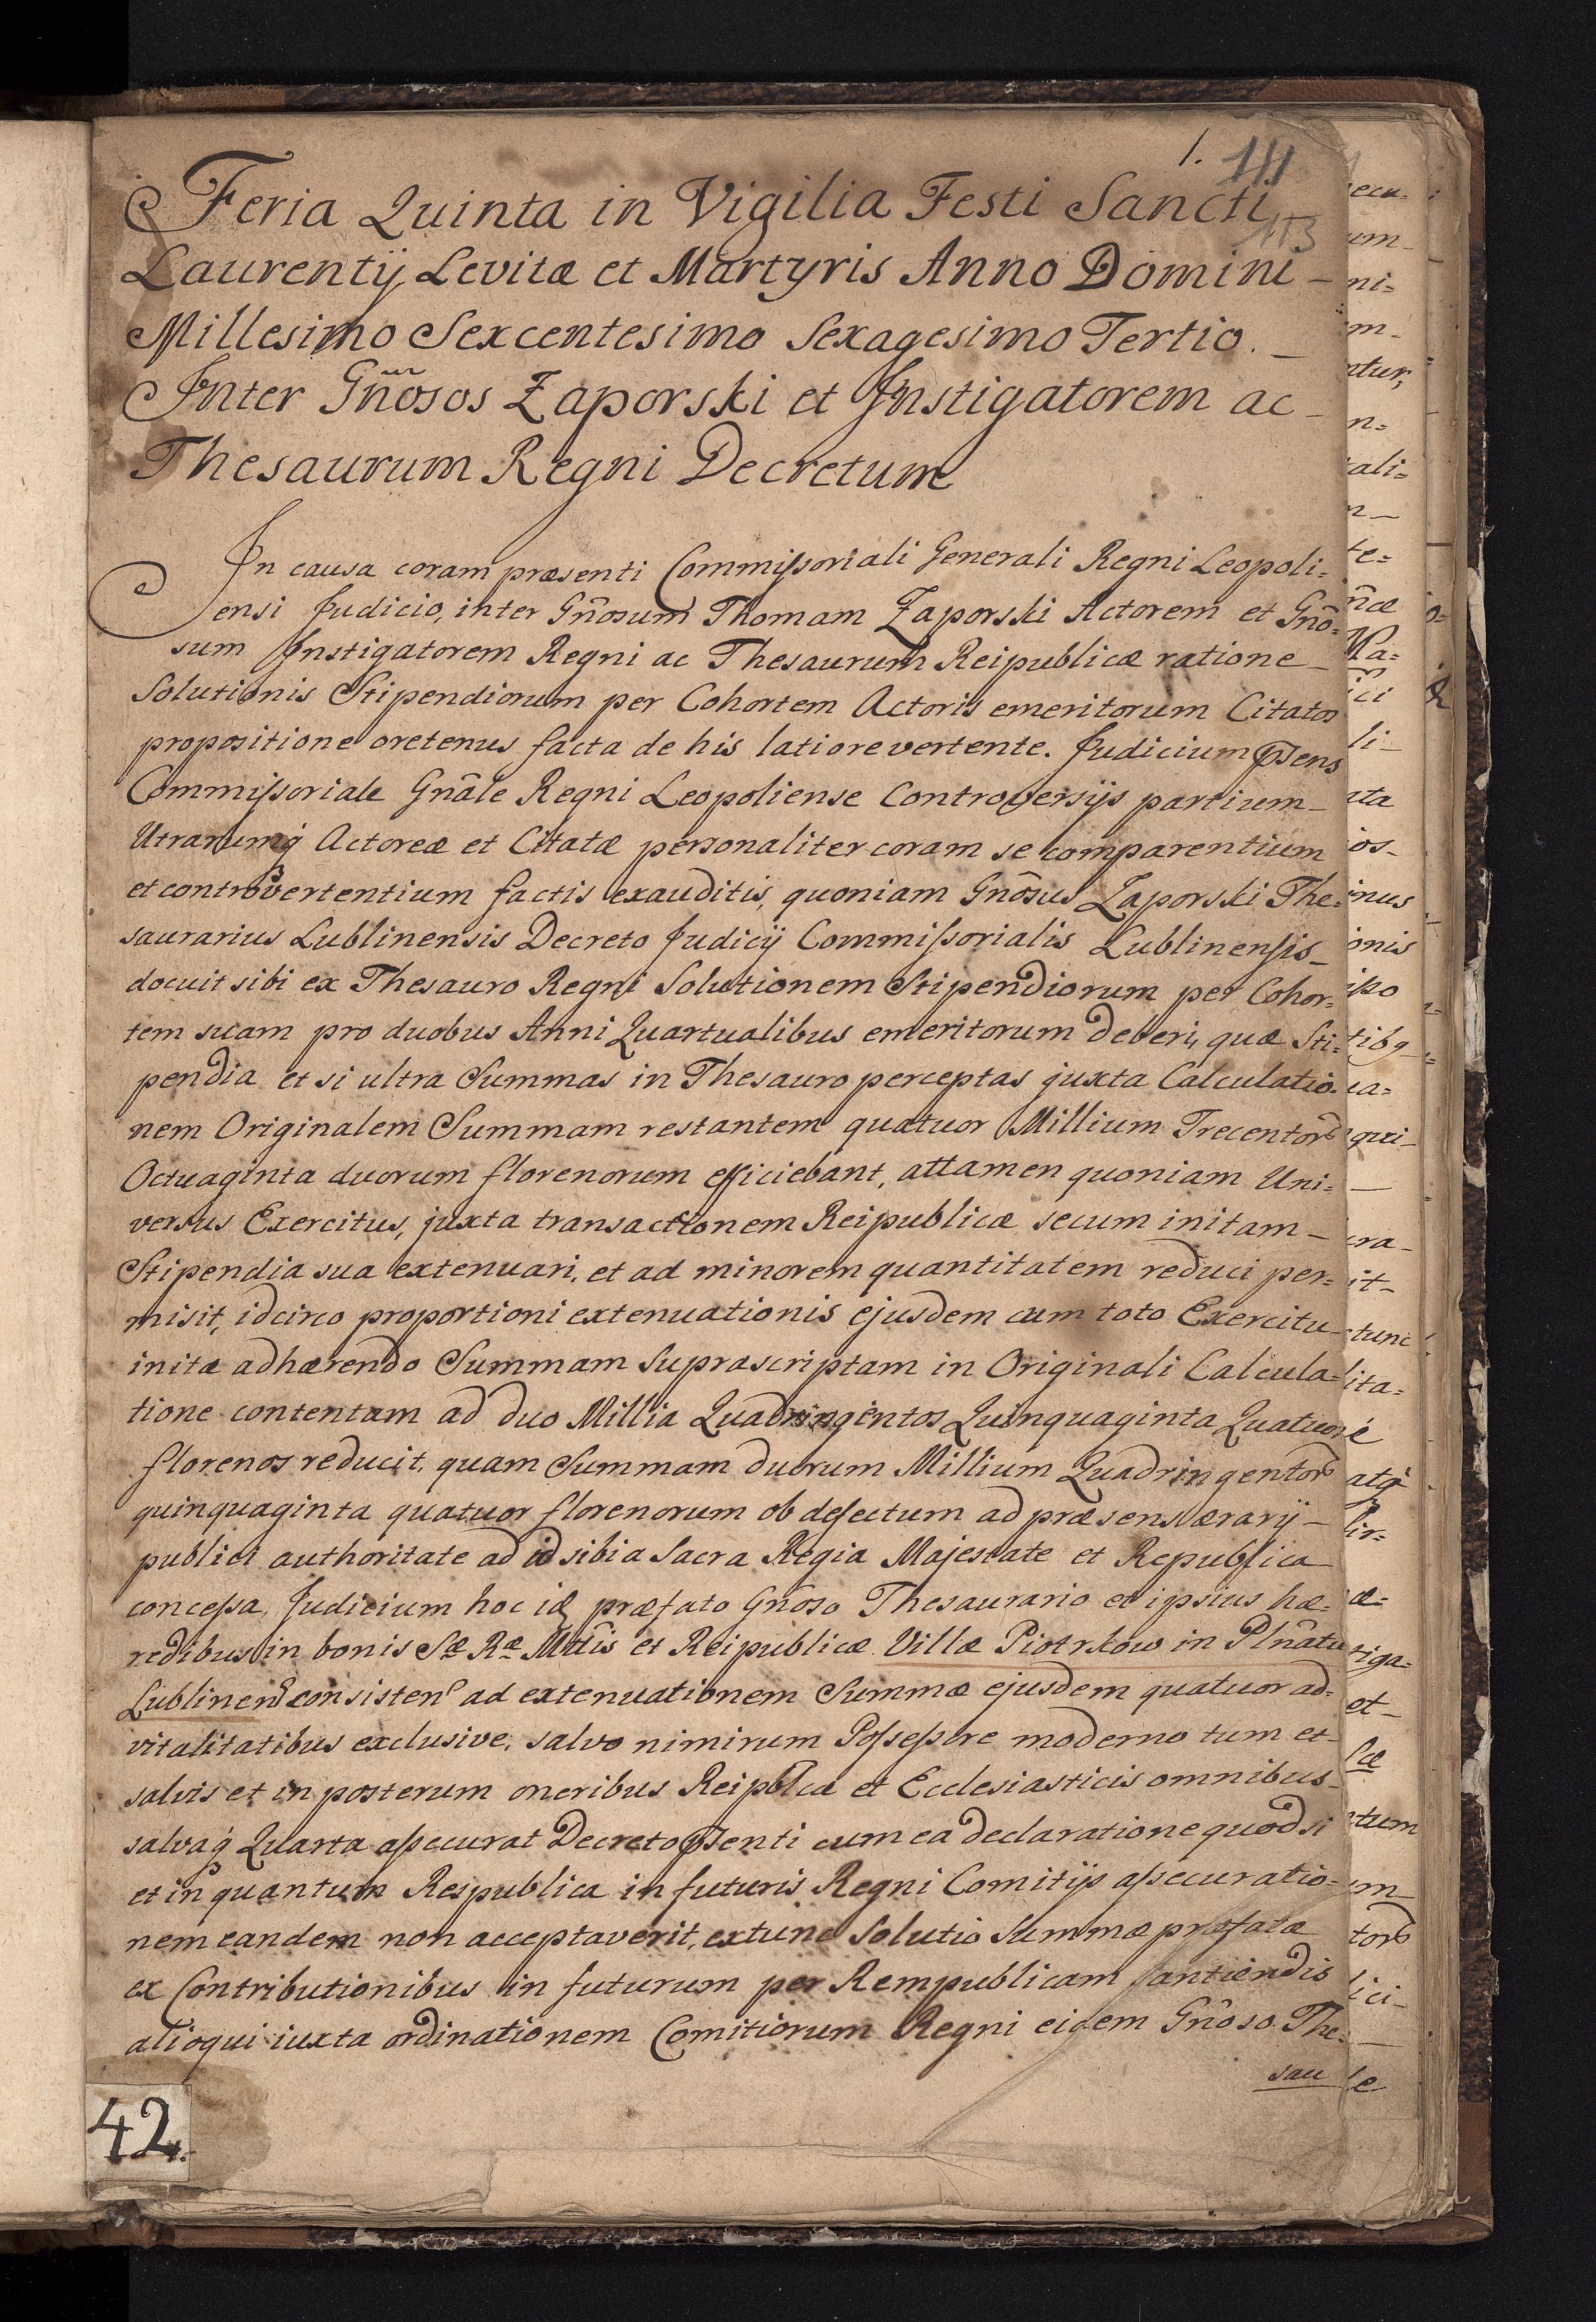 1. 111
113
Feria Quinta in Vigilia Festi Sancti
Laurentij Levitæ et Martyris Anno Domini –
Millesimo Sexcentesimo Sexagesimo Tertio. –
Inter Gn̄osos Zaporski et Instigatorem ac –
Thesaurum Regni Decretum
In causa coram præsenti Commissoriali Generali Regni Leopoli=
ensi Judicio, inter Gn̄osum Thomam Zaporski Actorem et Gn̄o=
sum Instigatorem Regni ac Thesaurum Reipublicæ ratione –
Solutionis Stipendiorum per Cohortem Actoris emeritorum Citatos
propositione oretenus facta de his latiore vertente. Judicium p̄sens
Commissoriale Gn̄ale Regni Leopoliense Controversijs partium –
Utrarumq́ Actoreæ et Citatæ personaliter coram se comparentium
et controvertentium factis exauditis, quoniam Gn̄osus Zaporski The=
saurarius Lublinensis Decreto Judicij Commissorialis Lublinensis –
docuit sibi ex Thesauro Regni Solutionem Stipendiorum per Cohor=
tem suam pro duobus Anni Quartualibus emeritorum deberi, quæ Sti=
pendia et si ultra Summas in Thesauro perceptas juxta Calculatio=
nem Originalem Summam restantem quatuor Millium Trecentor
Octuaginta duorum florenorum efficiebant, attamen quoniam Uni=
versus Exercitus, juxta transactionem Reipublicæ secum initam –
Stipendia sua extenuari, et ad minorem quantitatem reduci per=
misit, idcirco proportioni extenuationis ejusdem cum toto Exercitu –
initæ adhærendo Summam suprascriptam in Originali Calcula=
tione contentam ad duo Millia Quadringentos Quinquaginta Quatuor
florenos reducit, quam Summam duorum Millium Quadringentor
quinquaginta quatuor florenorum ob defectum ad præsens ærarij –
publici authoritate ad id sibi a Sacra Regia Majestate et Republica
concessa, Judicium hoc id præfato Gn̄oso Thesaurario et ipsius hæ=
redibus in bonis Sæ Ræ Mttis et Reipublicæ Villæ Piotrkow in Pln̄atu
Lublinen consisten ad extenuationem Summæ ejusdem quatuor ad=
vitalitatibus exclusive, salvo nimirum Possessore moderno tum et –
salvis et in posterum oneribus Reipblcæ et Ecclesiasticis omnibus –
salvaq́ Quarta assecurat Decreto p̄senti cum ea declaratione quod si
et in quantum Respublica in futuris Regni Comitijs assecuratio=
nem eandem non acceptaverit, extunc Solutio Summæ præfatæ
ex Contributionibus in futurum per Rempublicam santiendis
alioqui iuxta ordinationem Comitiorum Regni eidem Gn̄oso The=
sau
42.